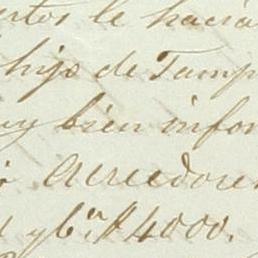 ertos le hacia
hijo de Tamp
uy bien infor
Acreedores
y bn. $4000.